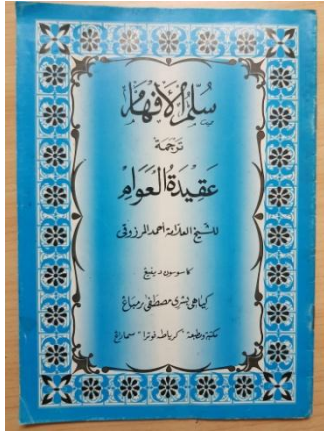 سُلَّمُ الْأَفْهَامِ
ترجمة
عَقِيْدَةُ الْعَوَامِ
للشيخ العلامة أحمد المرزوقي
كاسوسون دينيڠ
كياهي بشري مصطفى رمباڠ
مكتبة ومطبعة "كرياطه فوترا" سماراڠ